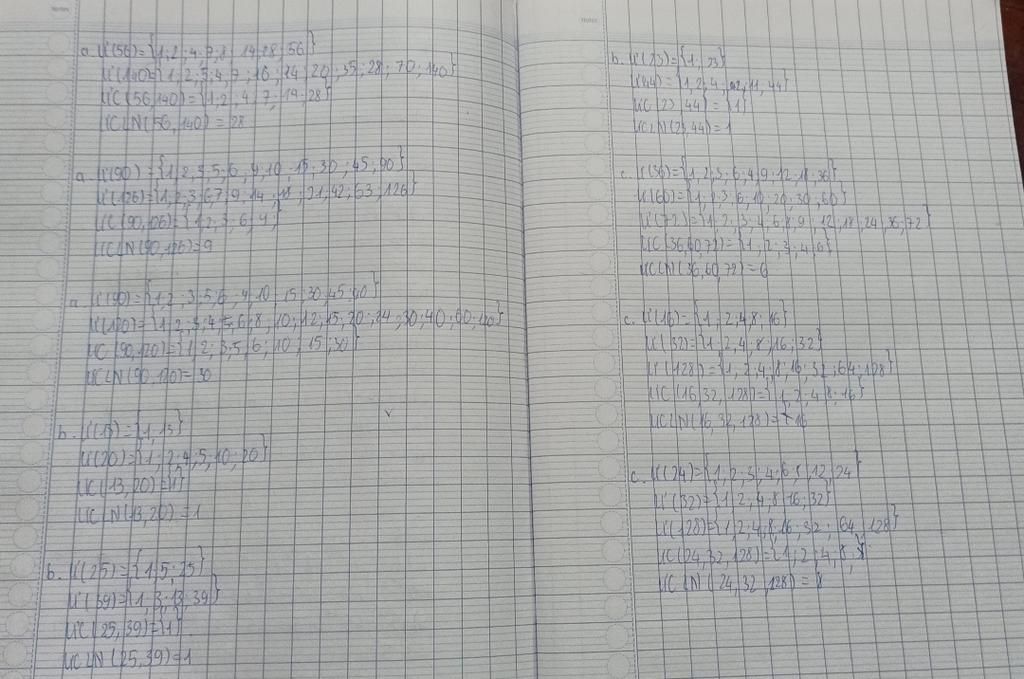 Notes
a. Ư(56)={1;2;4;7;8;14;28;56}
Ư(140)={1;2;5;4;7;10;14;20;35;28;70;140}
ƯC(56,140)={1;2;4;7;14;28}
ƯCLN(56,140)=28
a. Ư(90)={1;2;3;5;6;9;10;15;30;45;90}
Ư(126)={1;2;3;6;7;9;14;18;21;42;63;126}
ƯC(90,126)={1;2;3;6;9;}
ƯCLN(90,126)=9
a. Ư(90)={1;2;3;5;6;9;10;15;30;45;90}
Ư(120)={1;2;3;4;5;6;8;10;12;15;20;24;30;40;60;120}
ƯC(90,120)={1;2;3;5;6;10;15;30}
ƯCLN(90,120)=30
b. Ư(13)={1,13}
Ư(20)={1;2;4;5;10;20}
ƯC(13,20)={1}
ƯCLN(13,20)=1
b. Ư(25)={1;5;25}
Ư(39)={1;3;13;39}
ƯC(25,39)={1}
ƯCLN(25,39)=1
Notes
b. Ư(23)={1;23}
Ư(44)={1,2,4,22,11,44}
ƯC(23,44)={1}
ƯCLN(23,44)=1
c. Ư(36)={1,2,3;6;4;9;12;18;36}
Ư(60)={1,2;3;6;10;20;30;60}
Ư(72)={1,2;3;4;6;8;9;12;18;24;36;72}
ƯC(36,60,72)={1;2;3;4;6}
ƯCLN(36,60,72)=6
c. Ư(16)={1;2;4;8;16}
Ư(32)={1;2;4;8;16;32}
Ư(128)={1;2;4;8;16;32;64;128}
ƯC(16,32,128)={1,2;4;8;16}
ƯCLN(16,32,128)=16
c. Ư(24)={1;2;3;4;6;8;12;24}
Ư(32)={1;2;4;8;16;32}
Ư(128)={1;2;4;8;16;32;64;128}
ƯC(24,32,128)={1;2;4;8}
ƯCLN(24,32,128)=8